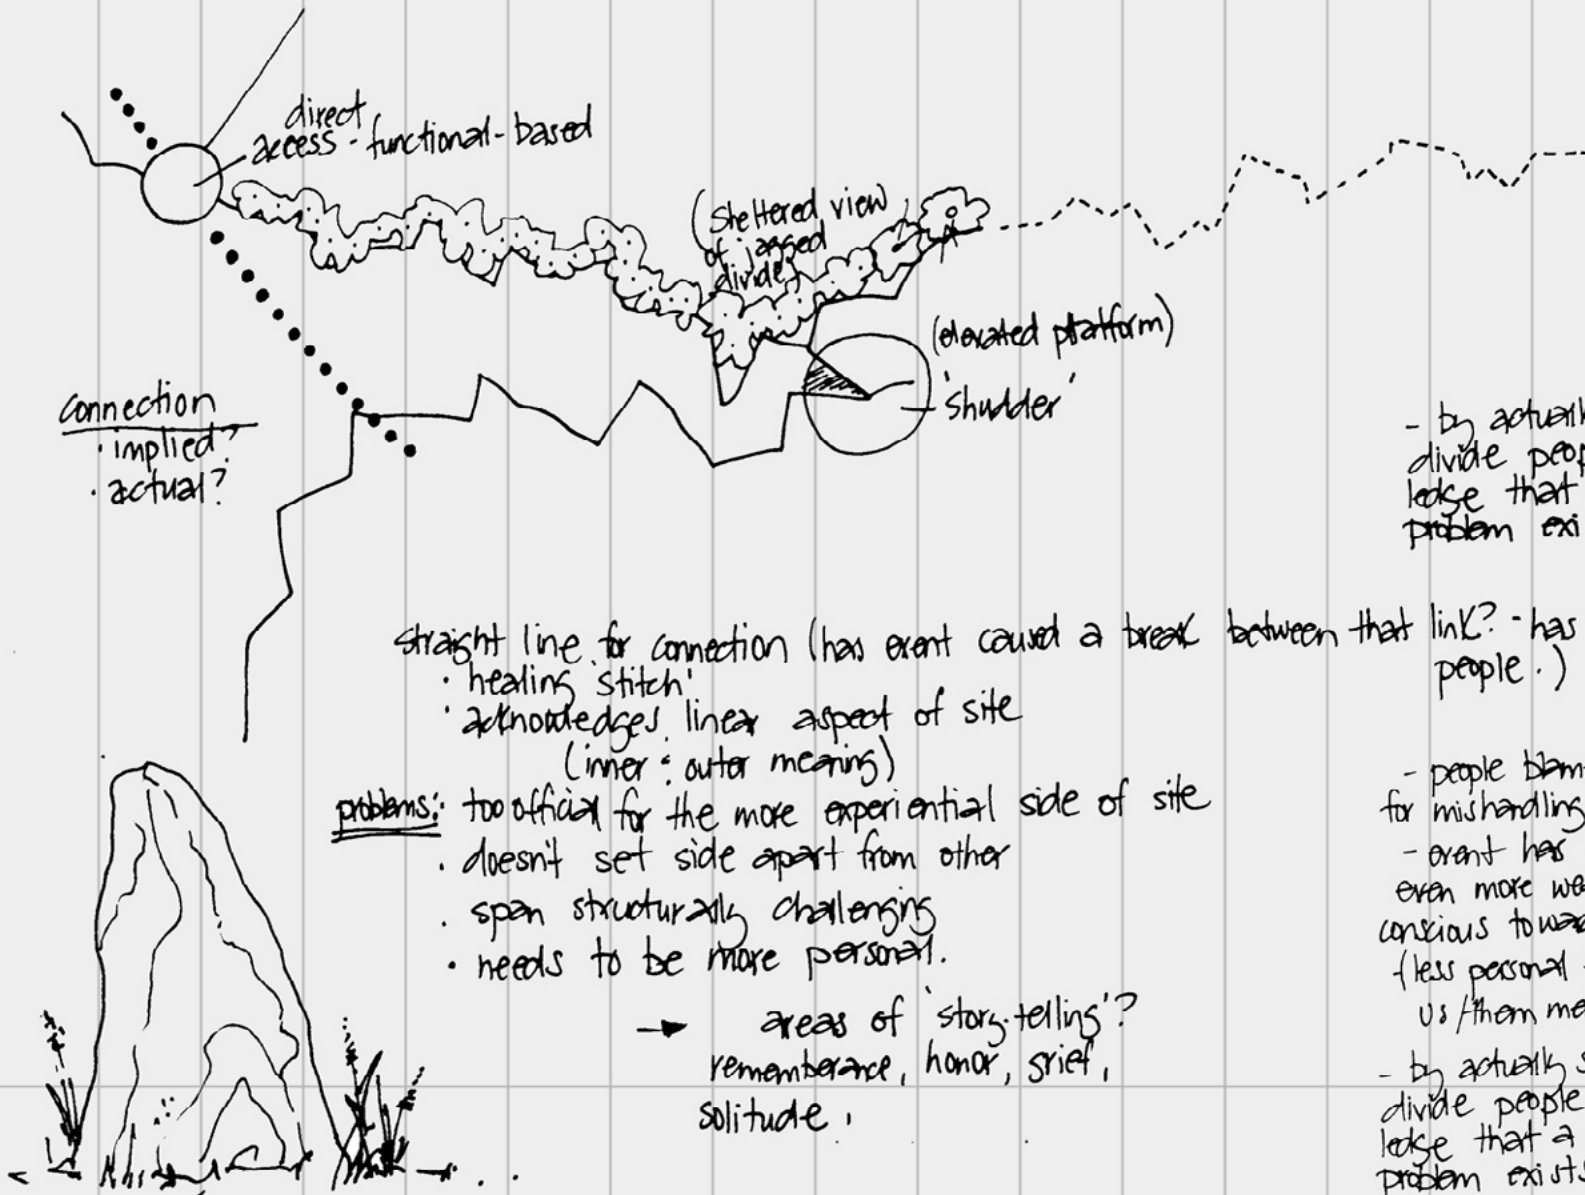 direct
access - functional-based
(sheltered view)
of jagged
divide)
(elevated platform)
'shudder'
connection
· implied?
· actual?
straight line for connection (has event caused a break between that link? - has
people.)
· healing 'stitch'
· acknowledges linear aspect of site
(inner : outer meaning)
problems: too official for the more experiential side of site
· doesn't set side apart from other
· span structurally challenging
· needs to be more personal.
→ areas of 'story-telling'?
rememberance, honor, grief,
solitude,
- by actuall
divide peop
ledge that
problem exi
- people blam
for mishandling
- event has
even more we
conscious towa
(less personal -
us/them me
- by actually s
divide people
ledge that a
problem exists